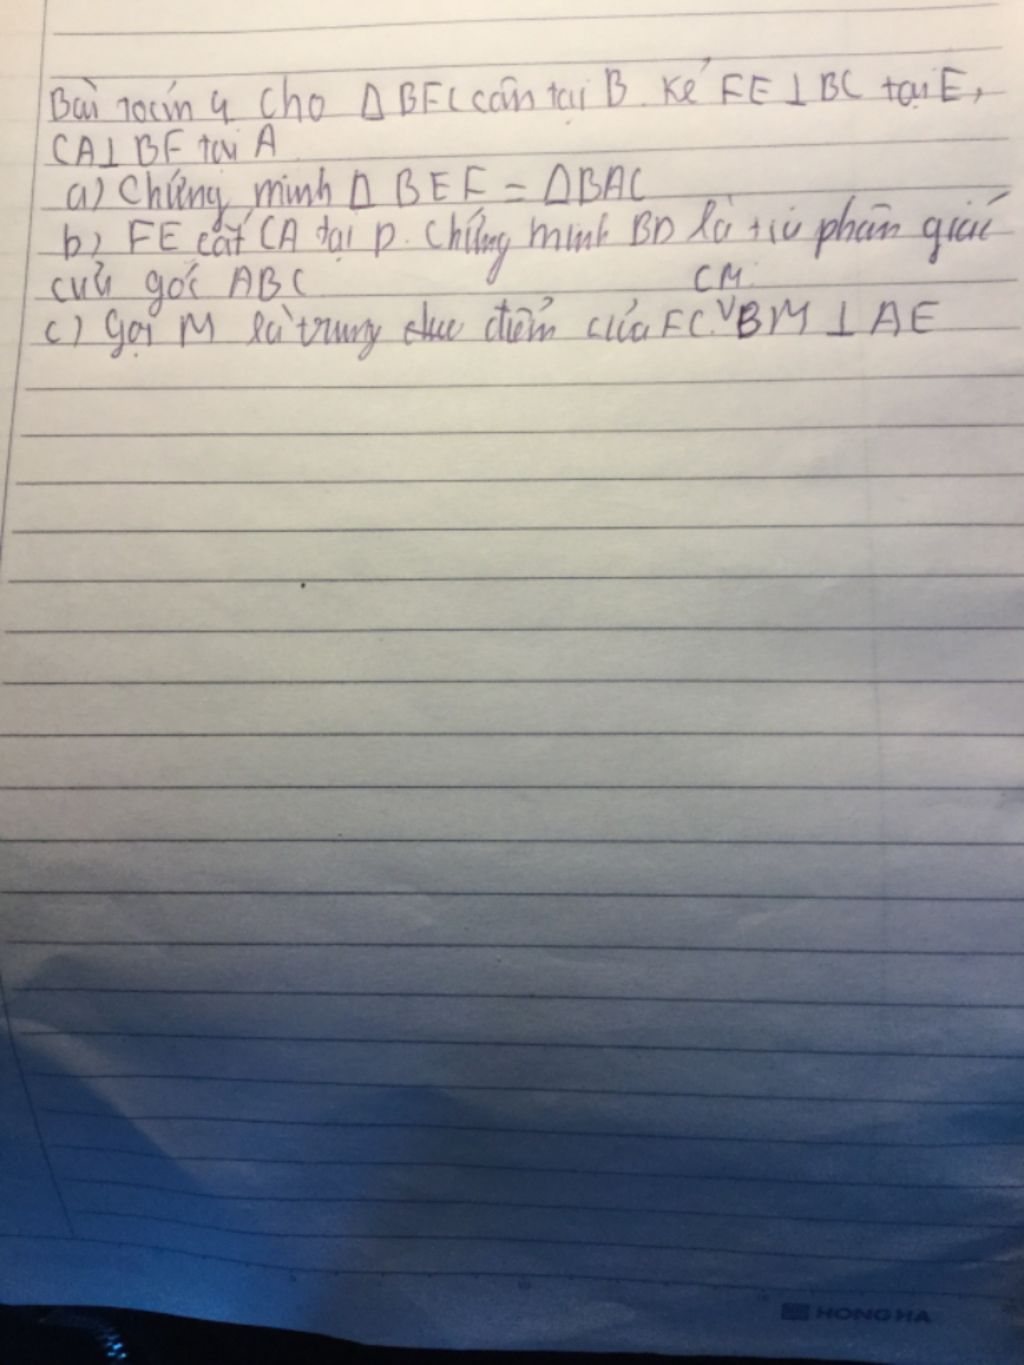 Bài toán 4 Cho Δ BFC cân tại B. Kẻ FE ⊥ BC tại E,
CA⊥ BF tại A
a) Chứng minh Δ BEF = ΔBAC
b) FE cắt CA tại D. Chứng minh BD là tia phân giác
của góc ABC
CM
c) Gọi M là trung điểm của FC. BM ⊥ AE
HONG HA